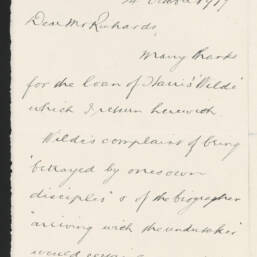 14 October 1917
Dear Mr Richards,
Many thanks
for the loan of Harris' 'Wilde'
which I return herewith.
Wilde's complaint of being
"betrayed by one's own
disciples" & of the biographer
"arriving with the undertaker"
would